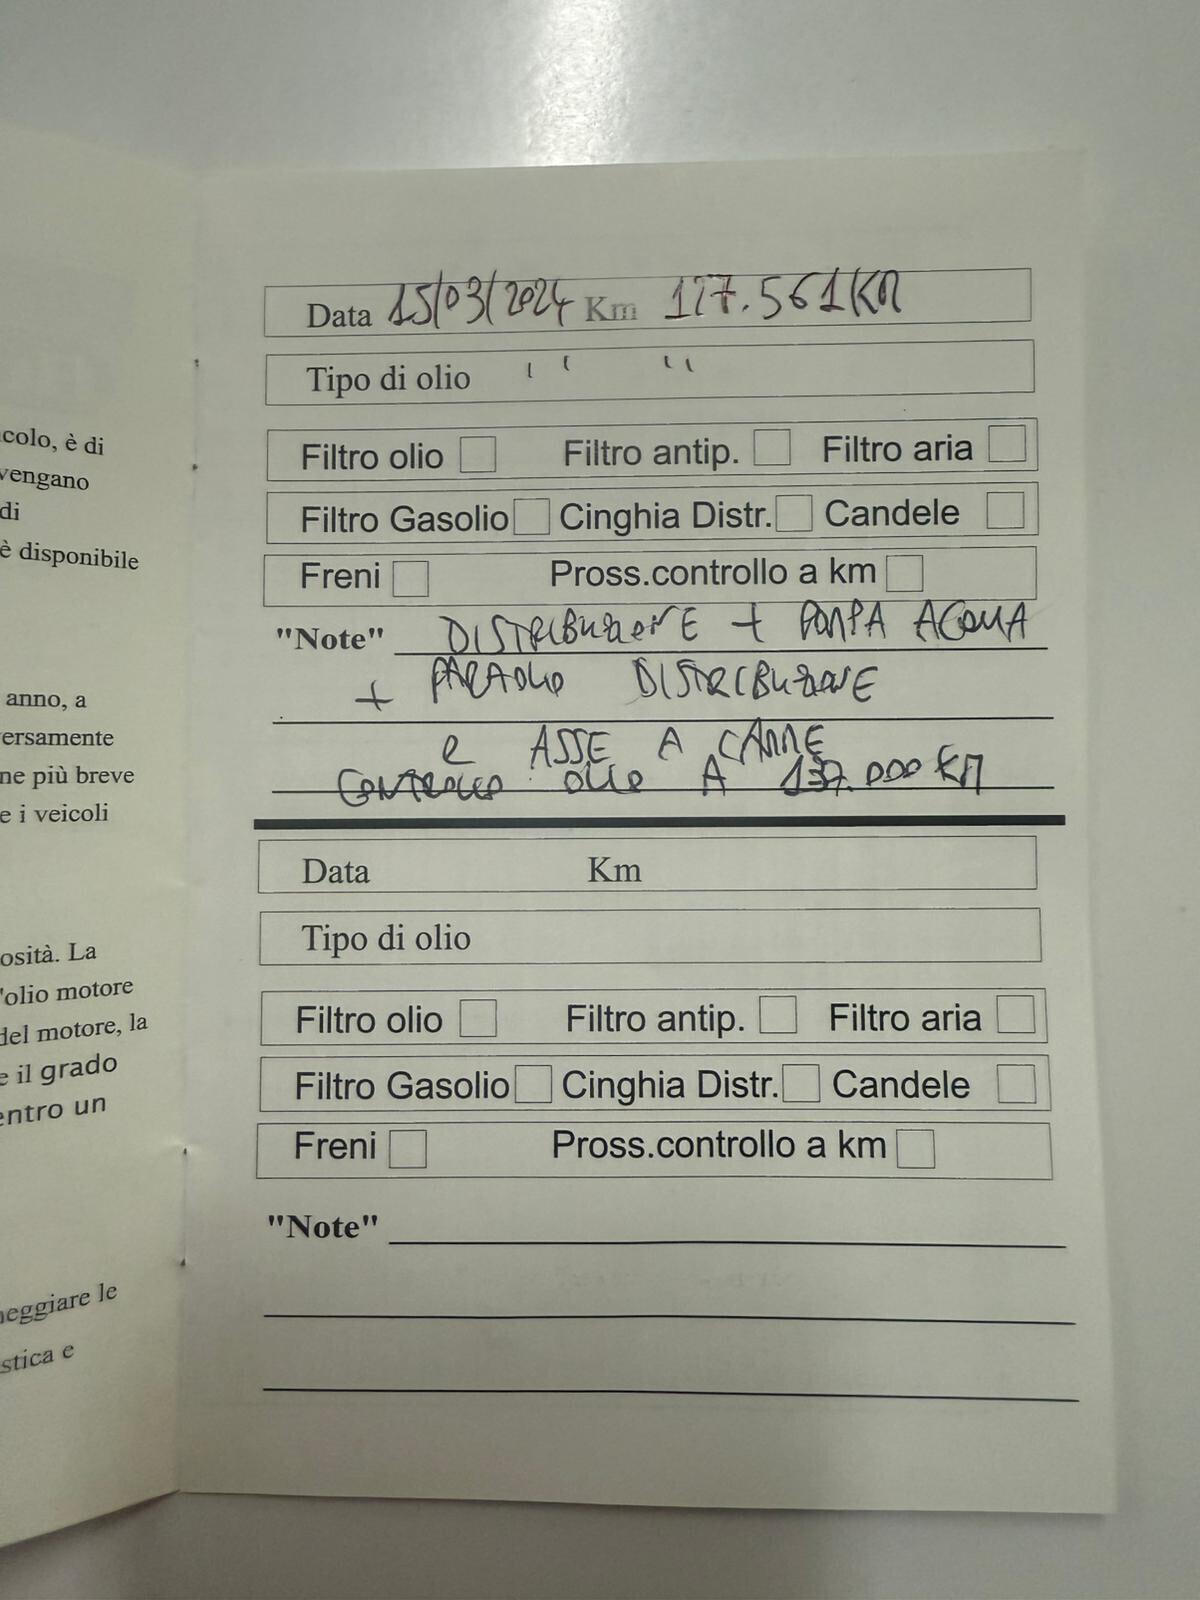 Data 15/03/2024 Km 127.561KM
Tipo di olio " "
Filtro olio Filtro antip. Filtro aria
Filtro Gasolio Cinghia Distr. Candele
Freni Pross.controllo a km
"Note" DISTRIBUZIONE + POMPA ACQUA
+ PARAOLIO DISTRIBUZIONE
e ASSE A CAMME
CONTROLLO OLIO A 137.000 KM
Data Km
Tipo di olio
Filtro olio Filtro antip. Filtro aria
Filtro Gasolio Cinghia Distr. Candele
Freni Pross.controllo a km
"Note"
colo, è di
vengano
di
è disponibile
anno, a
versamente
ne più breve
e i veicoli
osità. La
'olio motore
del motore, la
e il grado
entro un
neggiare le
stica e